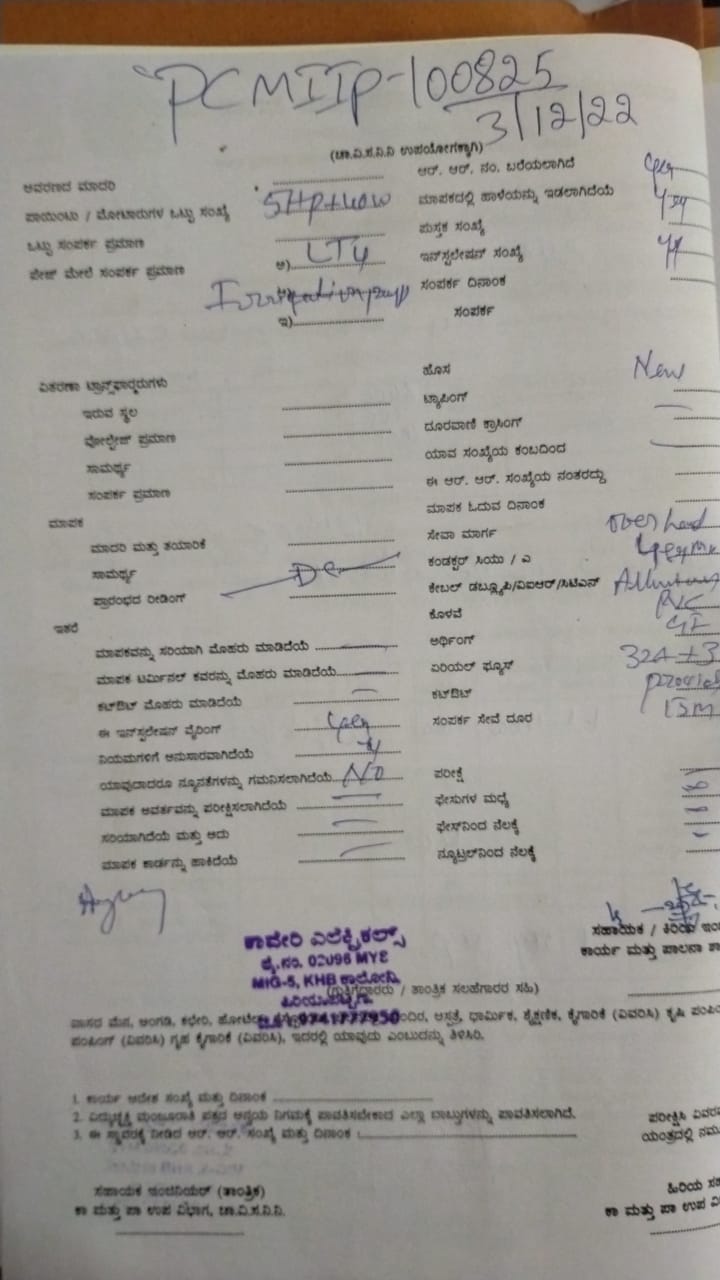 PCMIIP-100825
3/12/22
(ಚಾ.ವಿ.ಸ.ನಿ.ನಿ ಉಪಯೋಗಕ್ಕಾಗಿ)
ಆವರಣದ ಮಾದರಿ
ಪಾಯಿಂಟು / ಮೋಟಾರುಗಳ ಒಟ್ಟು ಸಂಖ್ಯೆ 5Hp+40W
ಒಟ್ಟು ಸಂಪರ್ಕ ಪ್ರಮಾಣ
ಪೇಜ್ ಮೇಲೆ ಸಂಪರ್ಕ ಪ್ರಮಾಣ ಅ) LT4
ಇ)
ಆರ್. ಆರ್. ನಂ. ಬರೆಯಲಾಗಿದೆ
ಮಾಪಕದಲ್ಲಿ ಹಾಳೆಯನ್ನು ಇಡಲಾಗಿದೆಯೆ
ಪುಸ್ತಕ ಸಂಖ್ಯೆ
ಇನ್‌ಸ್ಟಲೇಷನ್ ಸಂಖ್ಯೆ
ಸಂಪರ್ಕ ದಿನಾಂಕ
ಸಂಪರ್ಕ
ವಿತರಣಾ ಟ್ರಾನ್ಸ್‌ಫಾರ್ಮರುಗಳು
ಇರುವ ಸ್ಥಲ
ವೋಲ್ಟೇಜ್ ಪ್ರಮಾಣ
ಸಾಮರ್ಥ್ಯ
ಸಂಪರ್ಕ ಪ್ರಮಾಣ
ಮಾಪಕ
ಮಾದರಿ ಮತ್ತು ತಯಾರಿಕೆ
ಸಾಮರ್ಥ್ಯ
ಪ್ರಾರಂಭದ ರೀಡಿಂಗ್
ಹೊಸ New
ಟ್ಯಾಪಿಂಗ್
ದೂರವಾಣಿ ಕ್ರಾಸಿಂಗ್
ಯಾವ ಸಂಖ್ಯೆಯ ಕಂಬದಿಂದ
ಈ ಆರ್. ಆರ್. ಸಂಖ್ಯೆಯ ನಂತರದ್ದು
ಮಾಪಕ ಓದುವ ದಿನಾಂಕ
ಸೇವಾ ಮಾರ್ಗ over head
ಕಂಡಕ್ಟರ್ ಸಿಯು / ಎ
ಕೇಬಲ್ ಡಬ್ಲ್ಯೂಪಿ/ವಿಐಆರ್/ಸಿಟಿಎನ್
ಕೊಳವೆ PVC
ಅರ್ಥಿಂಗ್ GI
ಏರಿಯಲ್ ಫ್ಯೂಸ್
ಕಟ್‌ಔಟ್
ಸಂಪರ್ಕ ಸೇವೆ ದೂರ 15m
ಇತರೆ
ಮಾಪಕವನ್ನು ಸರಿಯಾಗಿ ಮೊಹರು ಮಾಡಿದೆಯೆ
ಮಾಪಕ ಟರ್ಮಿನಲ್ ಕವರನ್ನು ಮೊಹರು ಮಾಡಿದೆಯೆ
ಕಟ್‌ಔಟ್ ಮೊಹರು ಮಾಡಿದೆಯೆ
ಈ ಇನ್‌ಸ್ಟಲೇಷನ್ ವೈರಿಂಗ್
ನಿಯಮಗಳಿಗೆ ಅನುಸಾರವಾಗಿದೆಯೆ
ಯಾವುದಾದರೂ ನ್ಯೂನತೆಗಳನ್ನು ಗಮನಿಸಲಾಗಿದೆಯೆ No
ಮಾಪಕ ಆವರ್ತವನ್ನು ಪರೀಕ್ಷಿಸಲಾಗಿದೆಯೆ
ಸರಿಯಾಗಿದೆಯೆ ಮತ್ತು ಅದು
ಮಾಪಕ ಕಾರ್ಡನ್ನು ಹಾಕಿದೆಯೆ
ಪರೀಕ್ಷೆ
ಫೇಸುಗಳ ಮಧ್ಯೆ
ಫೇಸ್‌ನಿಂದ ನೆಲಕ್ಕೆ
ನ್ಯೂಟ್ರಲ್‌ನಿಂದ ನೆಲಕ್ಕೆ
ಕಾವೇರಿ ಎಲೆಕ್ಟ್ರಿಕಲ್ಸ್
ಲೈ.ನಂ. 02096 MYE
MIG-5, KHB ಕಾಲೋನಿ
9741777950
(ಗುತ್ತಿಗೆದಾರರು / ತಾಂತ್ರಿಕ ಸಲಹೆಗಾರರ ಸಹಿ)
ಸಹಾಯಕ / ಕಿರಿಯ ಇಂ
ಕಾರ್ಯ ಮತ್ತು ಪಾಲನಾ ಶಾ
ವಾಸದ ಮನೆ, ಅಂಗಡಿ, ಕಛೇರಿ, ಆಸ್ಪತ್ರೆ, ಧಾರ್ಮಿಕ, ಶೈಕ್ಷಣಿಕ, ಕೈಗಾರಿಕೆ (ವಿವರಿಸಿ) ಕೃಷಿ ಪಂಪಿ
ಪಂಪಿಂಗ್ (ವಿವರಿಸಿ) ಗೃಹ ಕೈಗಾರಿಕೆ (ವಿವರಿಸಿ), ಇದರಲ್ಲಿ ಯಾವುದು ಎಂಬುದನ್ನು ತಿಳಿಸಿರಿ.
1. ಕಾರ್ಯ ಆದೇಶ ಸಂಖ್ಯೆ ಮತ್ತು ದಿನಾಂಕ
2. ವಿದ್ಯುಚ್ಛಕ್ತಿ ಮಂಜೂರಾತಿ ಪತ್ರದ ಅನ್ವಯ ನಿಗಮಕ್ಕೆ ಪಾವತಿಸಬೇಕಾದ ಎಲ್ಲಾ ಬಾಬ್ತುಗಳನ್ನು ಪಾವತಿಸಲಾಗಿದೆ.
3. ಈ ಸ್ಥಾವರಕ್ಕೆ ನೀಡಿದ ಆರ್. ಆರ್. ಸಂಖ್ಯೆ ಮತ್ತು ದಿನಾಂಕ :
ಪರೀಕ್ಷಿಸಿ ವಿವರ
ಯಂತ್ರದಲ್ಲಿ ನಮ
ಸಹಾಯಕ ಇಂಜಿನಿಯರ್ (ತಾಂತ್ರಿಕ)
ಕಾ ಮತ್ತು ಪಾ ಉಪ ವಿಭಾಗ, ಚಾ.ವಿ.ಸ.ನಿ.ನಿ.
ಹಿರಿಯ ಸಹ
ಕಾ ಮತ್ತು ಪಾ ಉಪ ವಿ